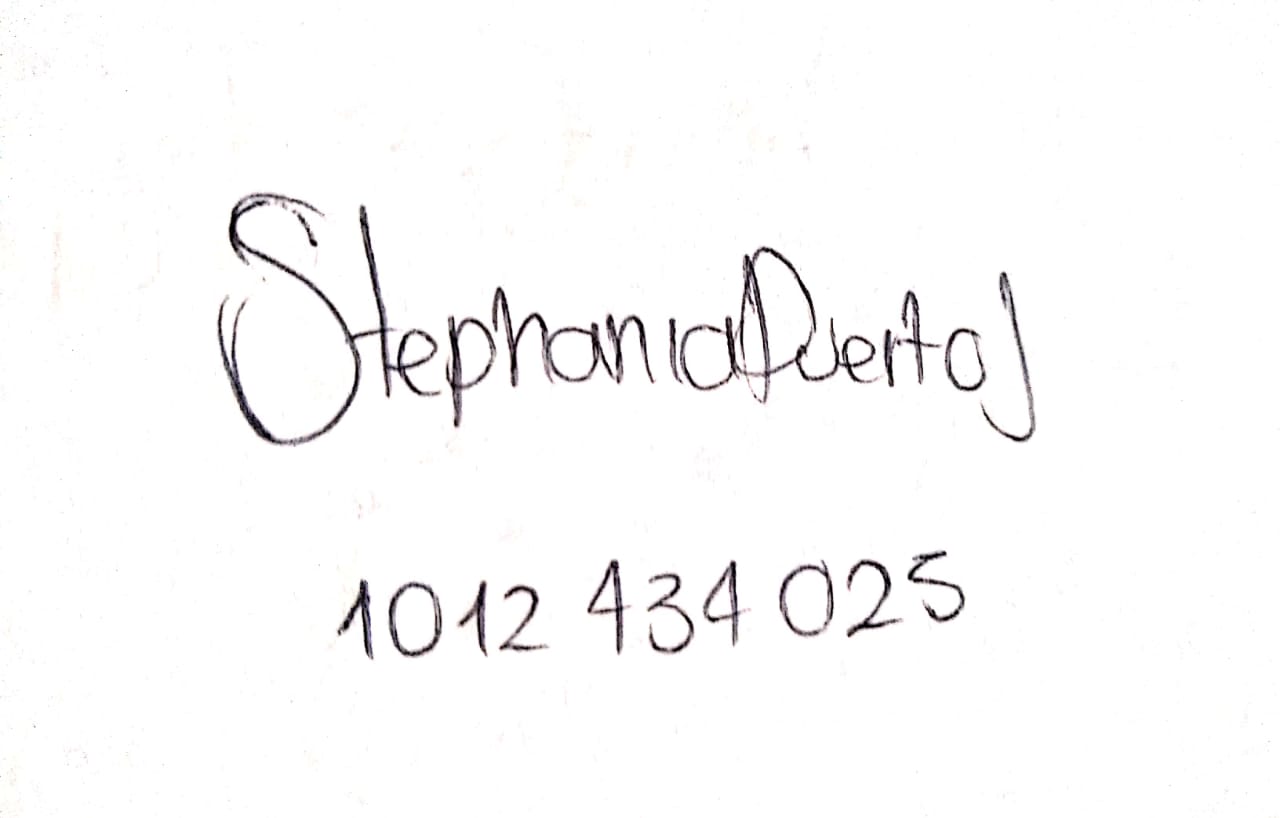 Stephania Puerto J
1012 434 025